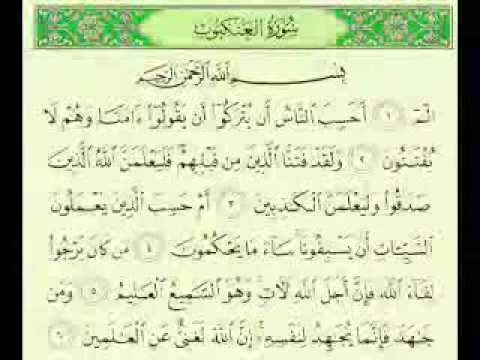 سُورَةُ الْعَنكَبُوتِ
بِسْمِ اللَّهِ الرَّحْمَٰنِ الرَّحِيمِ
الٓمٓ ١ أَحَسِبَ النَّاسُ أَن يُتْرَكُوٓا۟ أَن يَقُولُوٓا۟ ءَامَنَّا وَهُمْ لَا
يُفْتَنُونَ ٢ وَلَقَدْ فَتَنَّا الَّذِينَ مِن قَبْلِهِمْ فَلَيَعْلَمَنَّ اللَّهُ الَّذِينَ
صَدَقُوا۟ وَلَيَعْلَمَنَّ الْكَٰذِبِينَ ٣ أَمْ حَسِبَ الَّذِينَ يَعْمَلُونَ
السَّيِّـَٔاتِ أَن يَسْبِقُونَا سَآءَ مَا يَحْكُمُونَ ٤ مَن كَانَ يَرْجُوا۟
لِقَآءَ اللَّهِ فَإِنَّ أَجَلَ اللَّهِ لَـَٔاتٍ وَهُوَ السَّمِيعُ الْعَلِيمُ ٥ وَمَن
جَٰهَدَ فَإِنَّمَا يُجَٰهِدُ لِنَفْسِهِۦٓ إِنَّ اللَّهَ لَغَنِىٌّ عَنِ الْعَٰلَمِينَ ٦